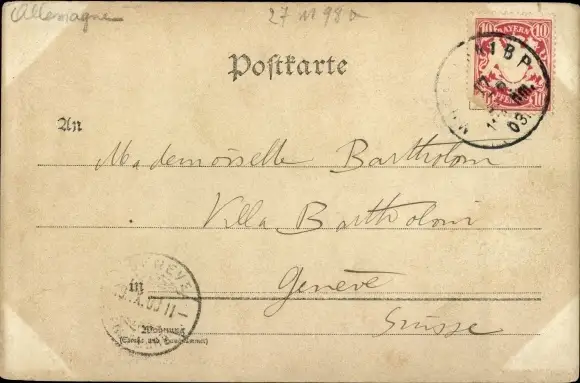 Allemagne
27 11 98
10 BAYERN 10
Postkarte
1 B P.
Nm.
03
An
Mademoiselle Bartholoni
Villa Bartholoni
in
Genève
Suisse
Wohnung
(Straße und Hausnummer)